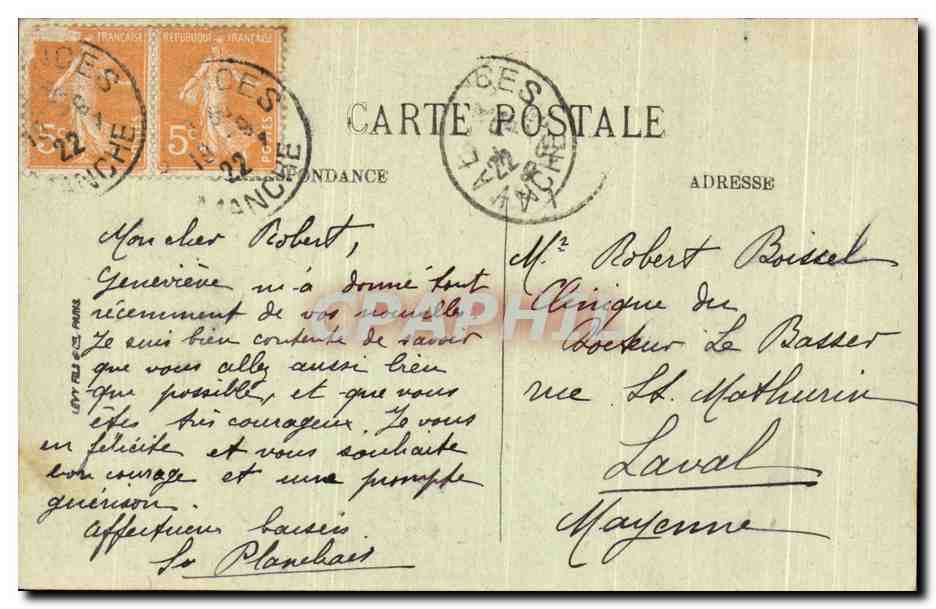 RÉPUBLIQUE FRANÇAISE
5c
POSTES
22
MANCHE
CARTE POSTALE
CORRESPONDANCE
ADRESSE
LÉVY FILS & Cie, PARIS
CPAPHIL
Mon cher Robert,
Geneviève m'a donné tout
récemment de vos nouvelles
Je suis bien contente de savoir
que vous allez aussi bien
que possible, et que vous
êtes très courageux. Je vous
en félicite et vous souhaite
bon courage et une prompte
guérison.
Affectueux baisers
Planchais
Mr Robert Boissel
Clinique du
Docteur Le Basser
rue St. Mathurin
Laval
Mayenne